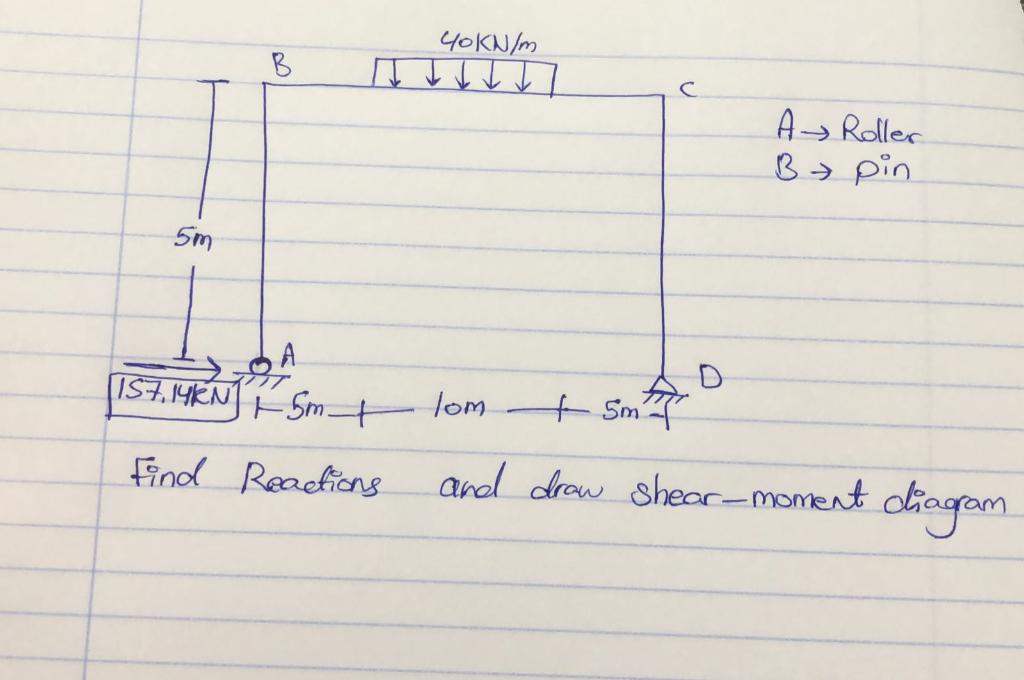 40KN/m
B
C
A → Roller
B → pin
5m
A
D
157.14KN
5m
10m
5m
find Reactions and draw shear-moment diagram